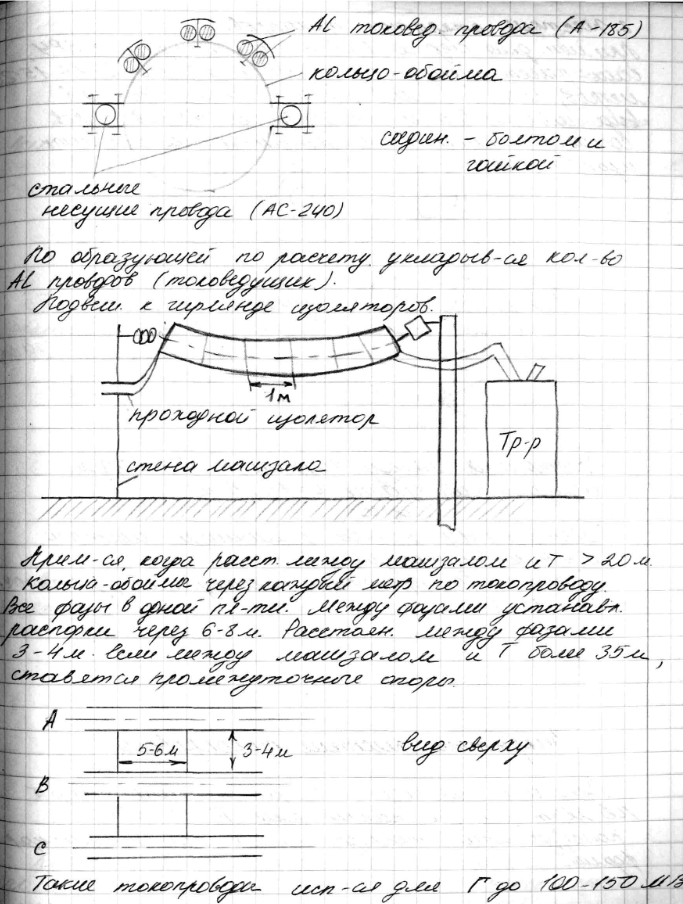 Al токовед. провода (А-185)
кольцо-обойма
соедин. - болтом и
гайкой
стальные
несущие провода (АС-240)
По образующей по расчету укладыв-ся кол-во
Al проводов (токоведущих).
Подвеш. к гирлянде изоляторов.
1м
проходной изолятор
Тр-р
стена машзала
Прим-ся, когда расст. между машзалом и Т > 20 м.
Кольца-обоймы через каждый метр по токопроводу.
Все фазы в одной пл-ти. Между фазами устанавл.
распорки через 6-8 м. Расстоян. между фазами
3-4 м. Если между машзалом и Т более 35 м,
ставятся промежуточные опоры.
А
5-6м
3-4м
вид сверху
В
С
Такие токопроводы исп-ся для Г до 100-150 МВ